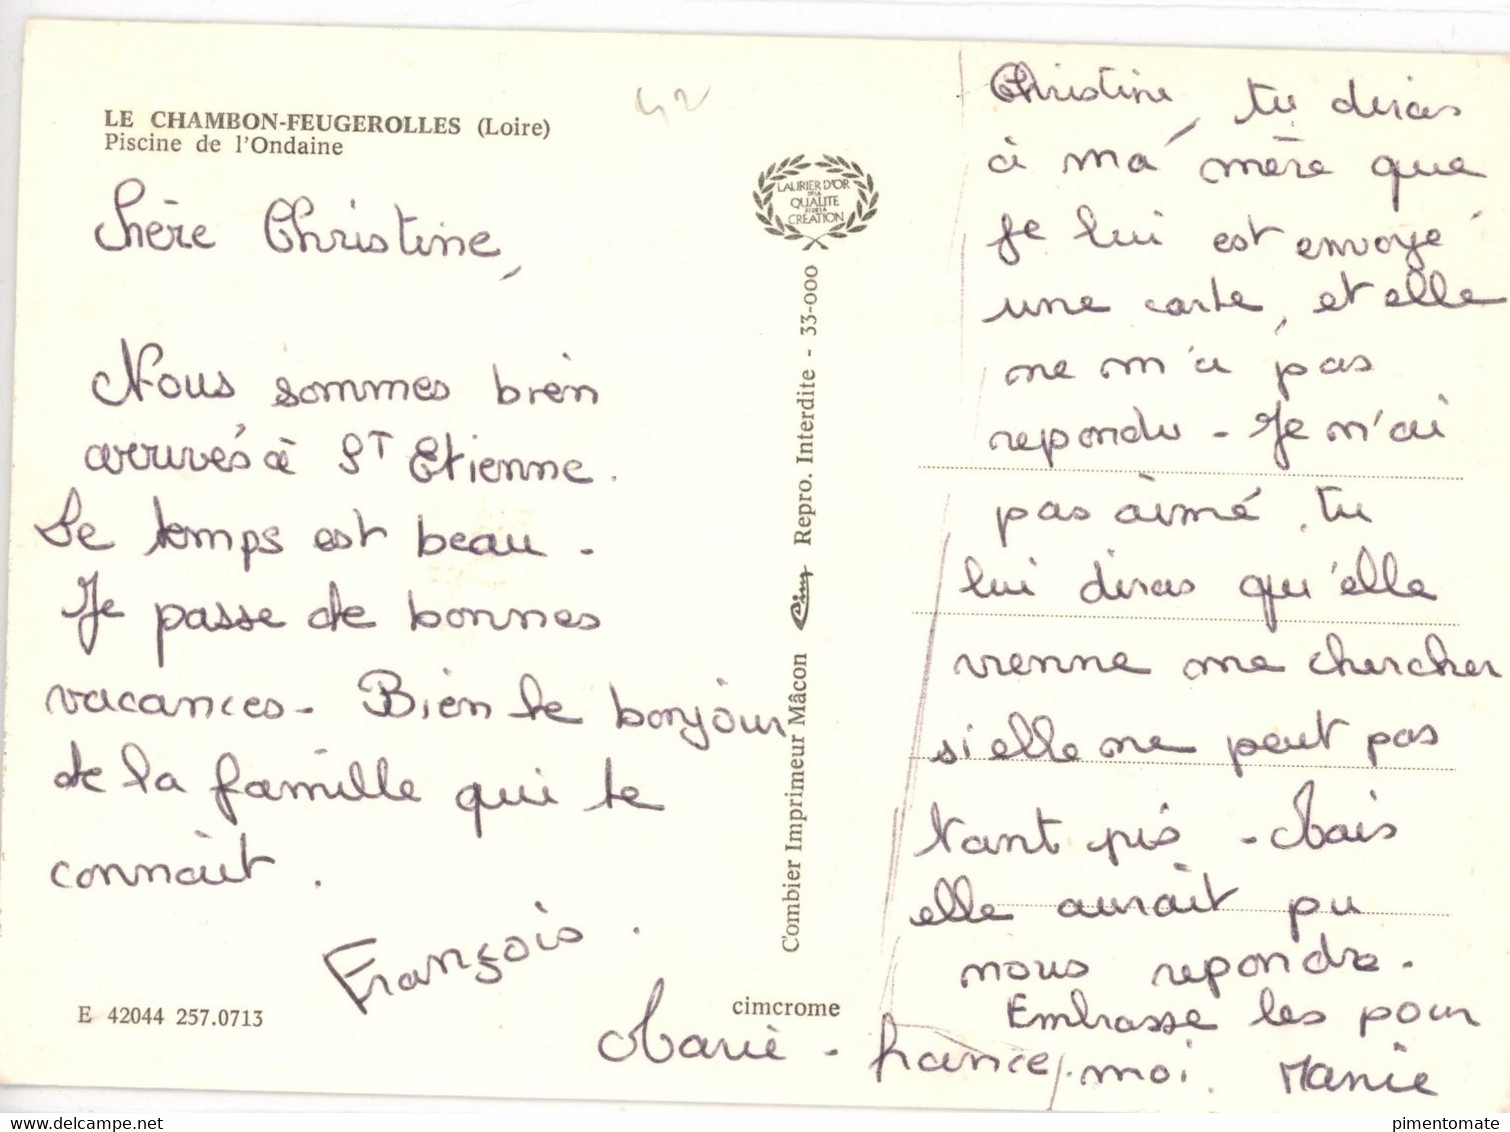 LE CHAMBON-FEUGEROLLES (Loire)
Piscine de l'Ondaine
42
LAURIER D'OR
DE LA
QUALITE
ET DE LA
CREATION
Chère Christine,
Nous sommes bien
arrivés à ST Etienne.
Le temps est beau -
Je passe de bonnes
vacances - Bien le bonjour
de la famille qui te
connait.
François.
Marie - france.
E 42044 257.0713
cimcrome
Combier Imprimeur Mâcon Cim Repro. Interdite - 33-000
Christine, tu diras
à ma mère que
je lui est envoyé
une carte, et elle
ne m'a pas
repondu - Je n'ai
pas aimé, tu
lui diras qu'elle
vienne me chercher
si elle ne peut pas
tant pis - Mais
elle aurait pu
nous repondre.
Embrasse les pour
moi. Manie
delcampe.net
pimentomate